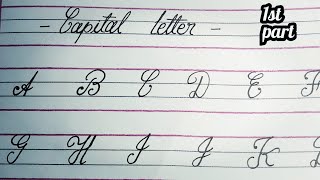 1st
part
- Capital letter -
A B C D E F
G H I J K L